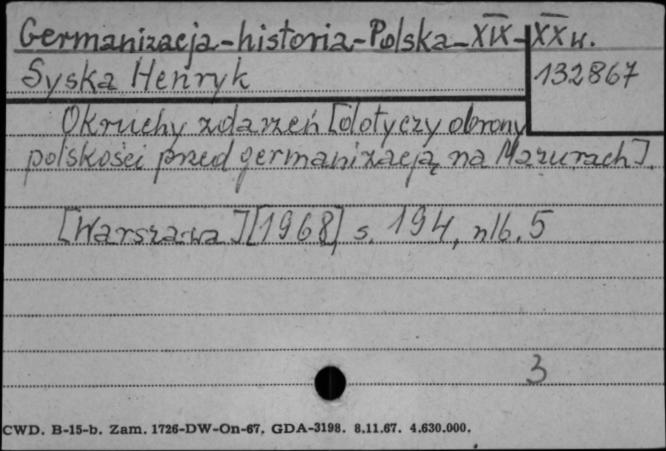 Germanizacja-historia-Polska-XIX-XX w.
Syska Henryk
132867
Okruchy zdarzeń [dotyczy obrony
polskości przed germanizacją na Mazurach].
[Warszawa] [1968] s. 194, nlb. 5
3
CWD. B-15-b. Zam. 1726-DW-On-67. GDA-3198. 8.11.67. 4.630.000.